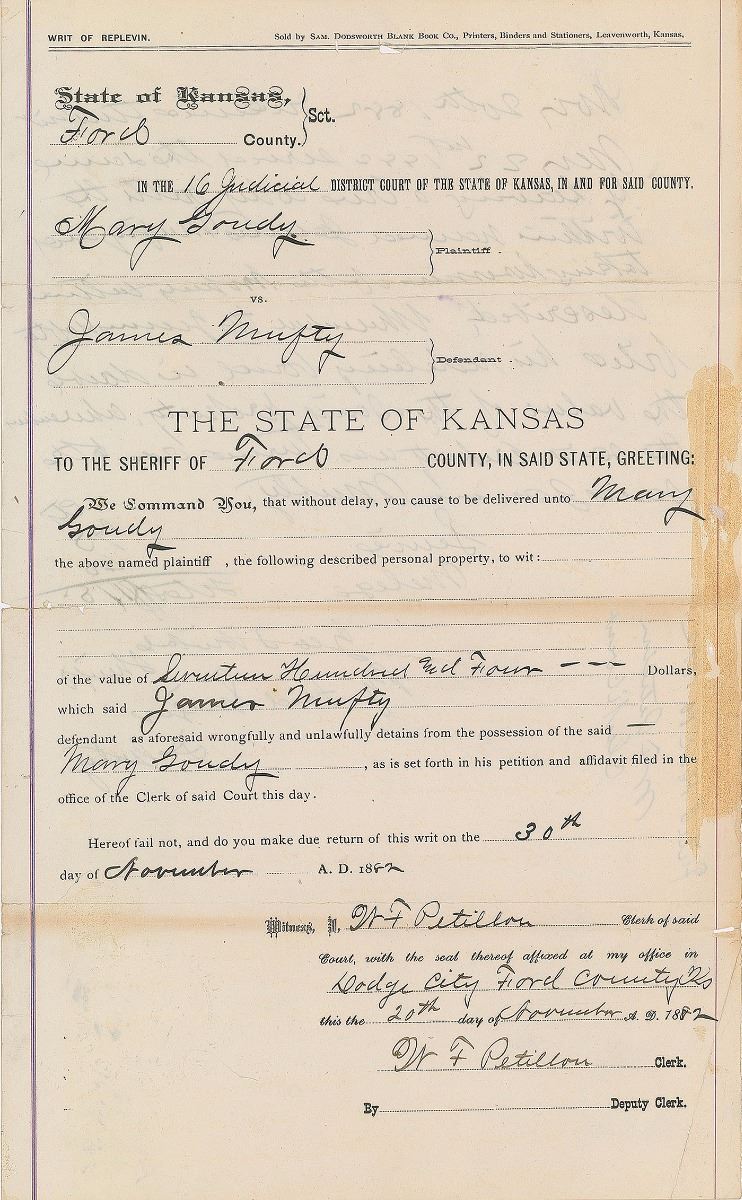 WRIT OF REPLEVIN. Sold by SAM. DODSWORTH BLANK BOOK CO., Printers, Binders and Stationers, Leavenworth, Kansas.
State of Kansas,
Ford County. } Sct.
IN THE 16 Judicial DISTRICT COURT OF THE STATE OF KANSAS, IN AND FOR SAID COUNTY.
Mary Goudy
Plaintiff.
vs.
James Mufty
Defendant.
THE STATE OF KANSAS
TO THE SHERIFF OF Ford COUNTY, IN SAID STATE, GREETING:
We Command You, that without delay, you cause to be delivered unto Mary
Goudy
the above named plaintiff , the following described personal property, to wit:
of the value of Seventeen Hundred and Four - - - Dollars,
which said James Mufty
defendant as aforesaid wrongfully and unlawfully detains from the possession of the said —
Mary Goudy , as is set forth in his petition and affidavit filed in the
office of the Clerk of said Court this day.
Hereof fail not, and do you make due return of this writ on the 30th
day of November A. D. 1882
Witness, I, W F Petillon Clerk of said
Court, with the seal thereof affixed at my office in
Dodge City Ford County Ks
this the 20th day of November A. D. 1882
W F Petillon Clerk.
By Deputy Clerk.